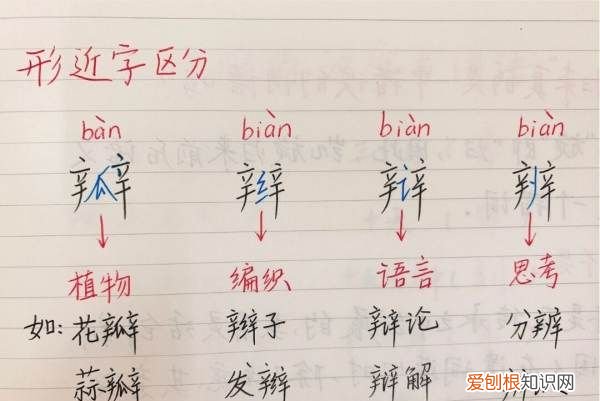 形近字区分
bàn biàn biàn biàn
瓣 辫 辩 辨
植物 编织 语言 思考
如：花瓣 辫子 辩论 分辨
蒜瓣 发辫 辩解
爱刨根知识网
www.baogen.com